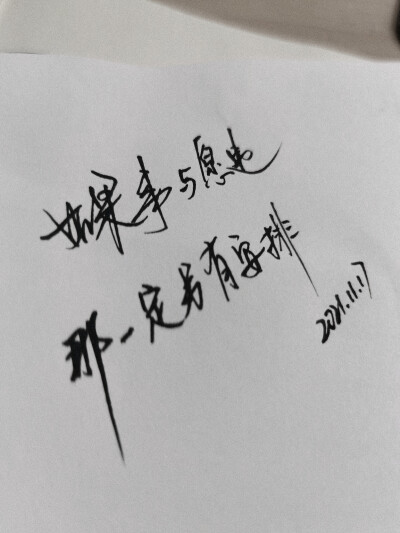 如果事与愿违
那一定另有安排
2021.11.17